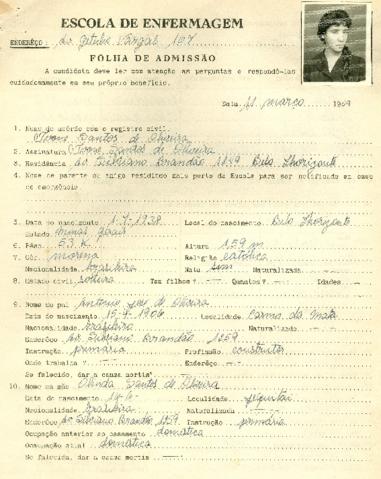 ESCOLA DE ENFERMAGEM
ENDERÊÇO: Av Getulio Vargas 167
FÔLHA DE ADMISSÃO
A candidata deve ler com atenção as perguntas e respondê-las
cuidadosamente em seu próprio benefício.
Data, 11 março 1959
1. Nome de acôrdo com o registro civil:
Ivone Santos de Oliveira
2. Assinatura Ivone Santos de Oliveira
3. Residência Av Silviano Brandão 1259 Belo Horizonte
4. Nome de parente ou amigo residindo mais perto da Escola para ser notificado em caso
de emergência
5. Data do nascimento 1-7-1938 Local do nascimento Belo Horizonte
Estado minas gerais
6. Pêso 53 K Altura 1,59 m
7. Côr morena Religião católica
Nacionalidade brasileira Nata sim Naturalizada
8. Estado civil solteira Tem filhos Quantos Idades
9. Nome do pai Antonio José de Oliveira
Data do nascimento 15-9-1906 Localidade Carmo da Mata
Nacionalidade brasileiro Naturalizado
Endereço Av Silviano Brandão 1259
Instrução primária Profissão construtor
Onde trabalha Endereço
Se falecido, dar a causa mortis
10. Nome da mãe Olinda Santos de Oliveira
Data do nascimento Localidade Jequitaí
Nacionalidade brasileira Naturalizada
Endereço Av Silviano Brandão 1259 Instrução primária
Ocupação anterior ao casamento doméstica
Ocupação atual doméstica
Se falecida, dar a causa mortis